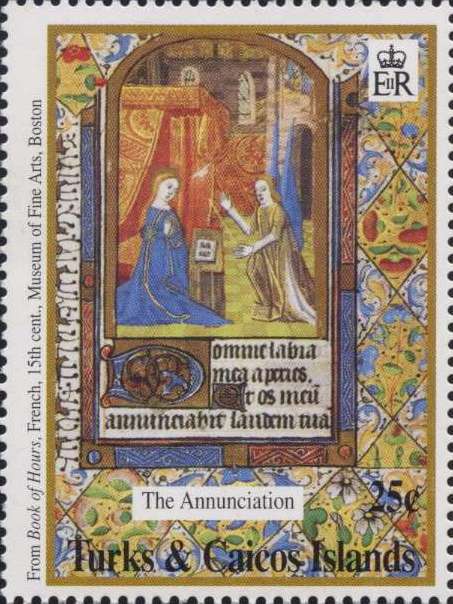 From Book of Hours, French, 15th cent., Museum of Fine Arts, Boston
EIIR
Domine labia
mea aperies.
Et os meū
annunciabit laudem tuā
The Annunciation
25¢
Turks & Caicos Islands